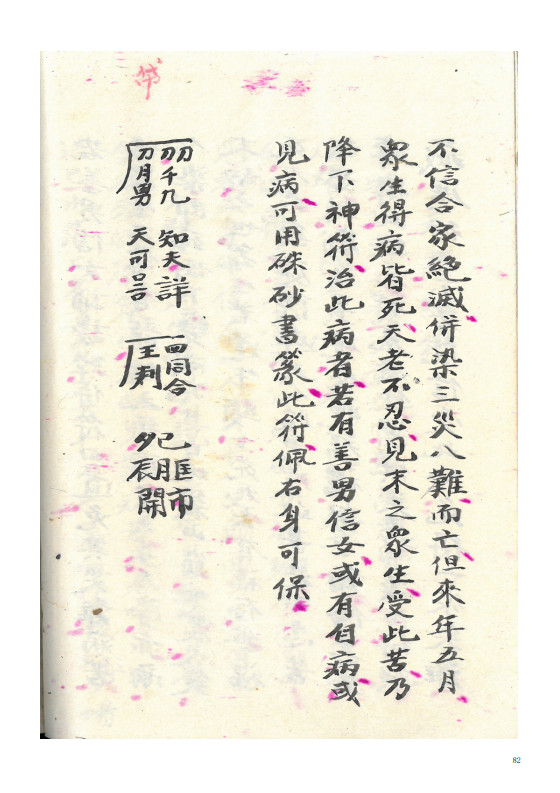 不信合家絕滅併染三災八難而亡但來年五月
眾生得病皆死天老不忍見末之眾生受此苦乃
降下神符治此病者若有善男信女或有自病或
見病可用硃砂書篆此符佩右身可保
刀千九 知夫詳 四同令 巳匡市
刀月勇 天可 王利 夕辰月開
符
82